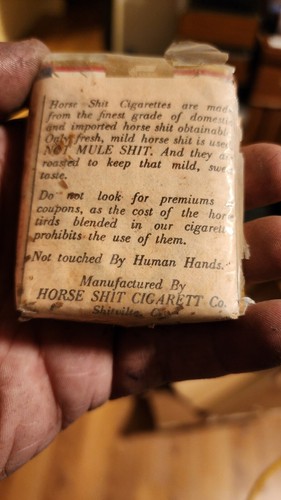 Horse Shit Cigarettes are made
from the finest grade of domesti
and imported horse shit obtainabl
Only fresh, mild horse shit is used
NOT MULE SHIT. And they a
roasted to keep that mild, swe
taste.
Do not look for premiums
coupons, as the cost of the hor
tirds blended in our cigarett
prohibits the use of them.
Not touched By Human Hands.
Manufactured By
HORSE SHIT CIGARETT Co.
Shitville,